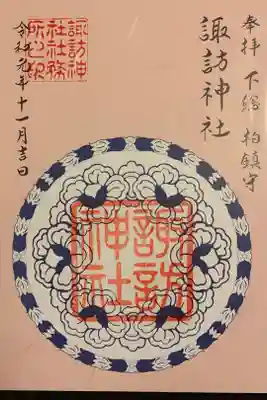 奉拝 下総 柏鎮守
諏訪神社
諏訪神
社社務
所之印
令和元年十一月吉日
諏訪
神社